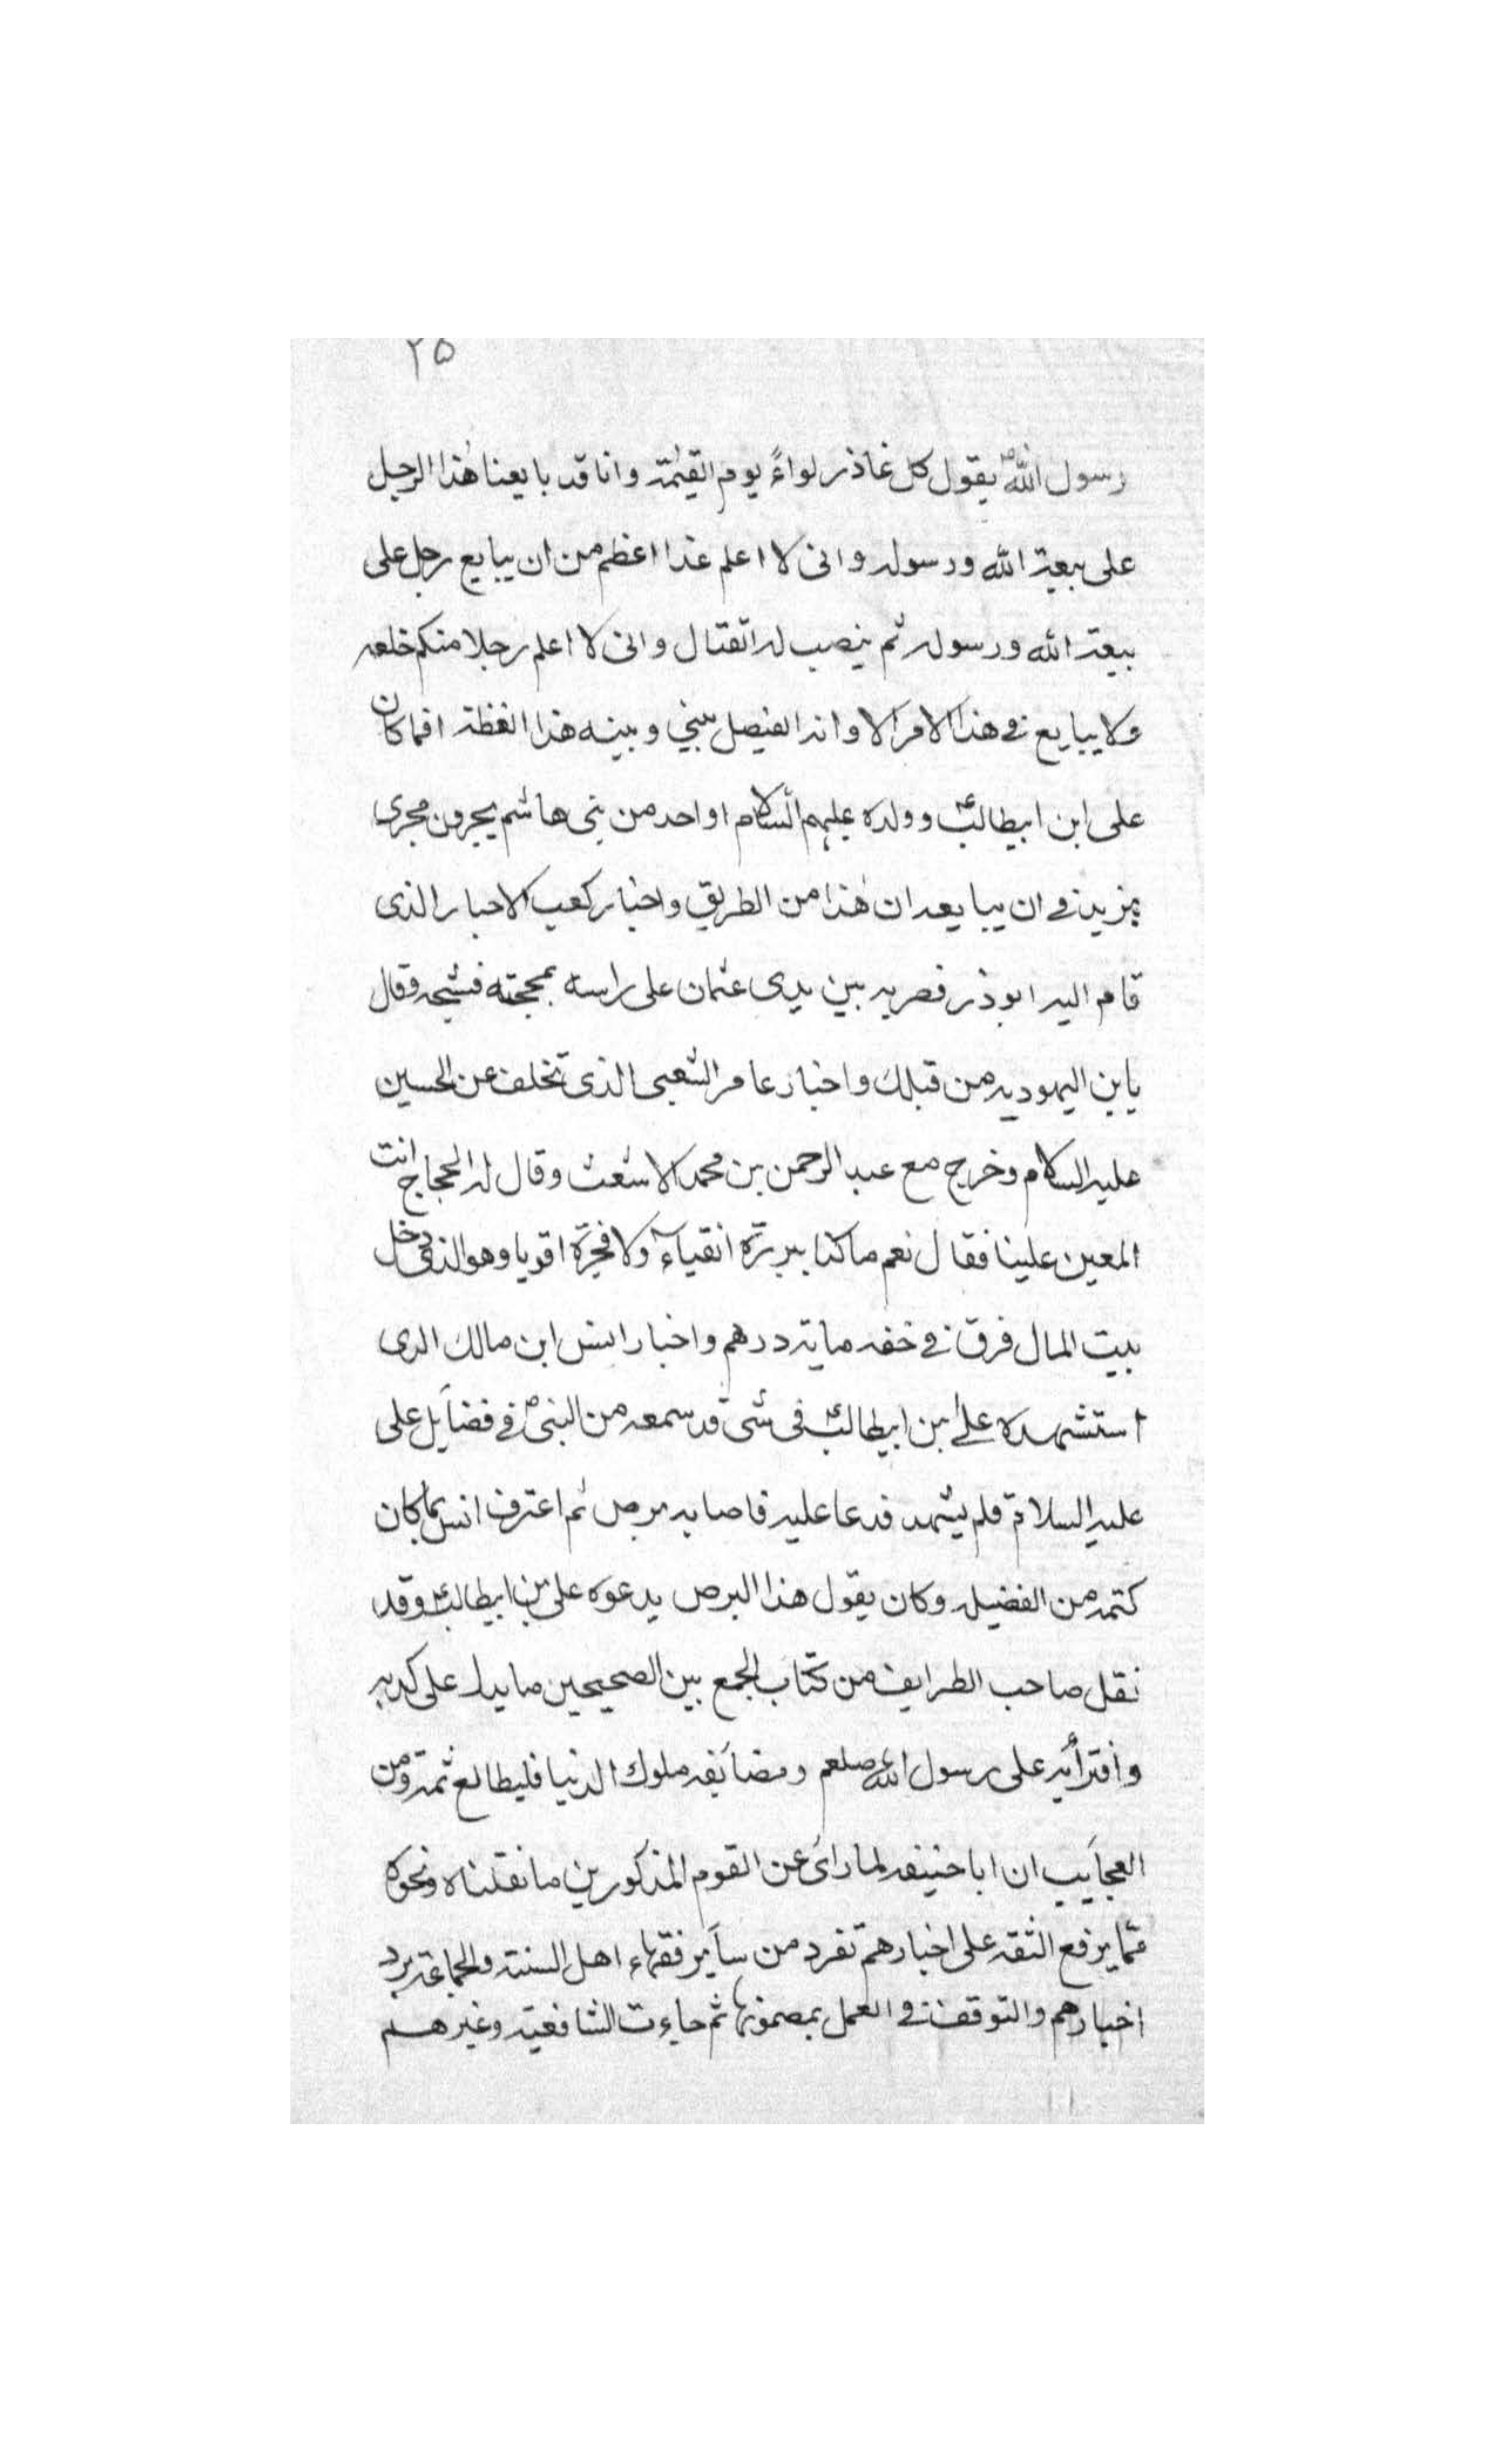 ۲۵
رسول اللهؐ يقول كل غاذر لواءً يوم القيٰمة وانا قد بايعنا هٰذا الرجل
على بيعة الله ورسوله وانى لا اعلم غدا اعظم من ان يبايع رجل على
بيعة الله ورسوله ثم ينصب له القتال وانى لا اعلم رجلا منكم خلعه
ولا يبايع فى هذا الامر الا وانه الفيصل بينى وبينه هذا الفظة افما كان
على ابن ابيطالبؑ وولده عليهم السلام او احد من بنى هاشم يجرون مجرى
يزيد فى ان يبايعه ان هٰذا من الطريق واخبار كعب الاحبار الذى
قام اليه ابوذر فضربه بين يدى عثمان على راسه بمحجته فشجه وقال
يابن اليهوديه من قبلك واخبار عامر الشعبى الذى تخلف عن الحسين
عليه السلام وخرج مع عبد الرحمن بن محمد الاشعث وقال له الحجاج انت
المعين علينا فقال نعم ما كنا ببررة اتقياء ولا فجرة اقويا وهو الذى دخل
بيت المال فرق فى خفه ماية درهم واخبار انس ابن مالك الدى
استشهده على بن ابيطالبؑ فى شى قد سمعه من النبىؐ فى فضايل على
عليه السلام فلم يشهد فدعا عليه فاصابه برص ثم اعترف انس بما كان
كتمه من الفضيله وكان يقول هذا البرص يدعوه على بن ابيطالبؑ وقد
نقل صاحب الطرايف من كتاب الجمع بين الصحيحين ما يدل على كذبه
وافترائه على رسول الله صلعم ومضايفه ملوك الدنيا فليطالع ثمة ومن
العجايب ان ابا حنيفه لما راى عن القوم المذكورين ما نقلناه ونحوه
مما يرفع الثقه على اخبارهم تفرد من ساير فقهاء اهل السنة والجماعة برد
اخبارهم والتوقف فى العمل بمضمونها ثم جاءت الشافعية وغيرهم